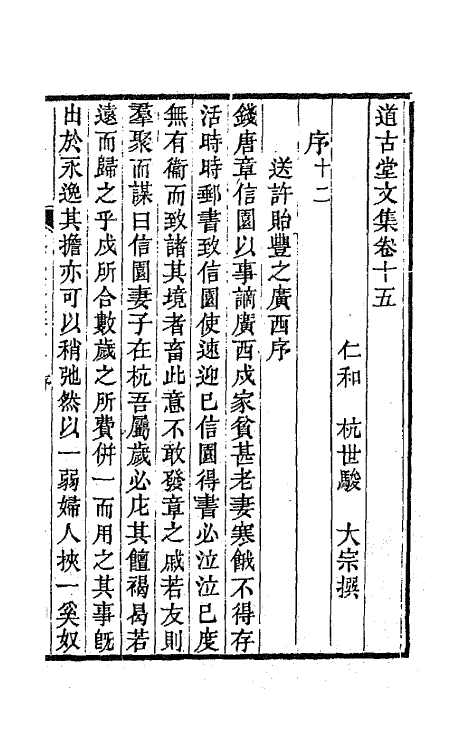 道古堂文集卷十五
仁和　杭世駿　大宗撰
序十二
送許貽豐之廣西序
錢唐章信園以事謫廣西戍家貧甚老妻寒餓不得存
活時時郵書致信園使速迎已信園得書必泣泣已度
無有衛而致諸其境者畜此意不敢發章之戚若友則
羣聚而謀曰信園妻子在杭吾屬歲必庀其饘褐曷若
遠而歸之乎戍所合數歲之所費併一而用之其事旣
出於永逸其擔亦可以稍弛然以一弱婦人挾一奚奴